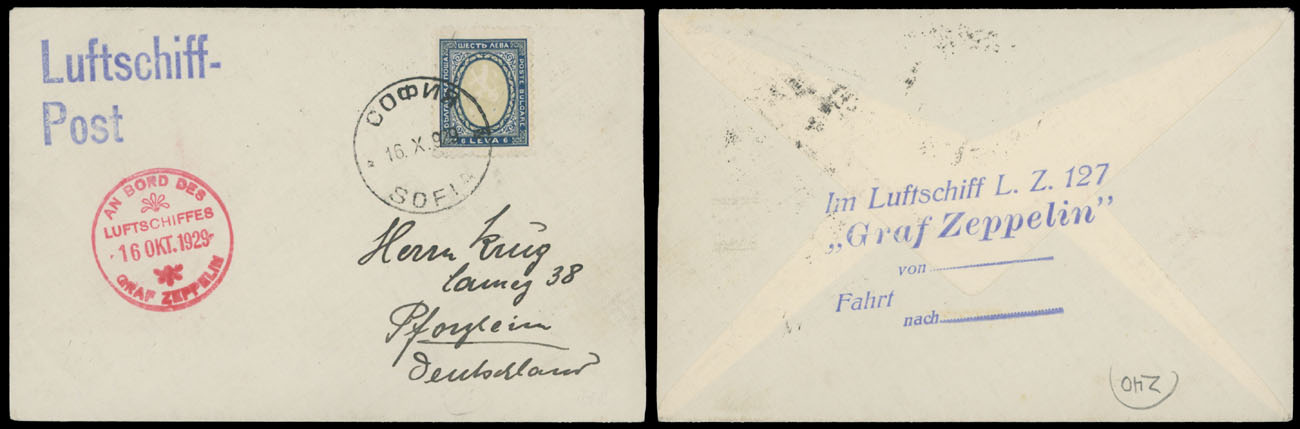 Luftschiff-
Post
ШЕСТЬ ЛЕВА
БЪЛГАРСКА ПОЩА
POSTE BULGARE
6 LEVA 6
СОФИЯ
16. X. 929
SOFIA
AN BORD DES
LUFTSCHIFFES
16 OKT. 1929
GRAF ZEPPELIN
Herrn Krug
Lameg 38
Pforzheim
Deutschland
Im Luftschiff L. Z. 127
„Graf Zeppelin”
von
Fahrt
nach
240